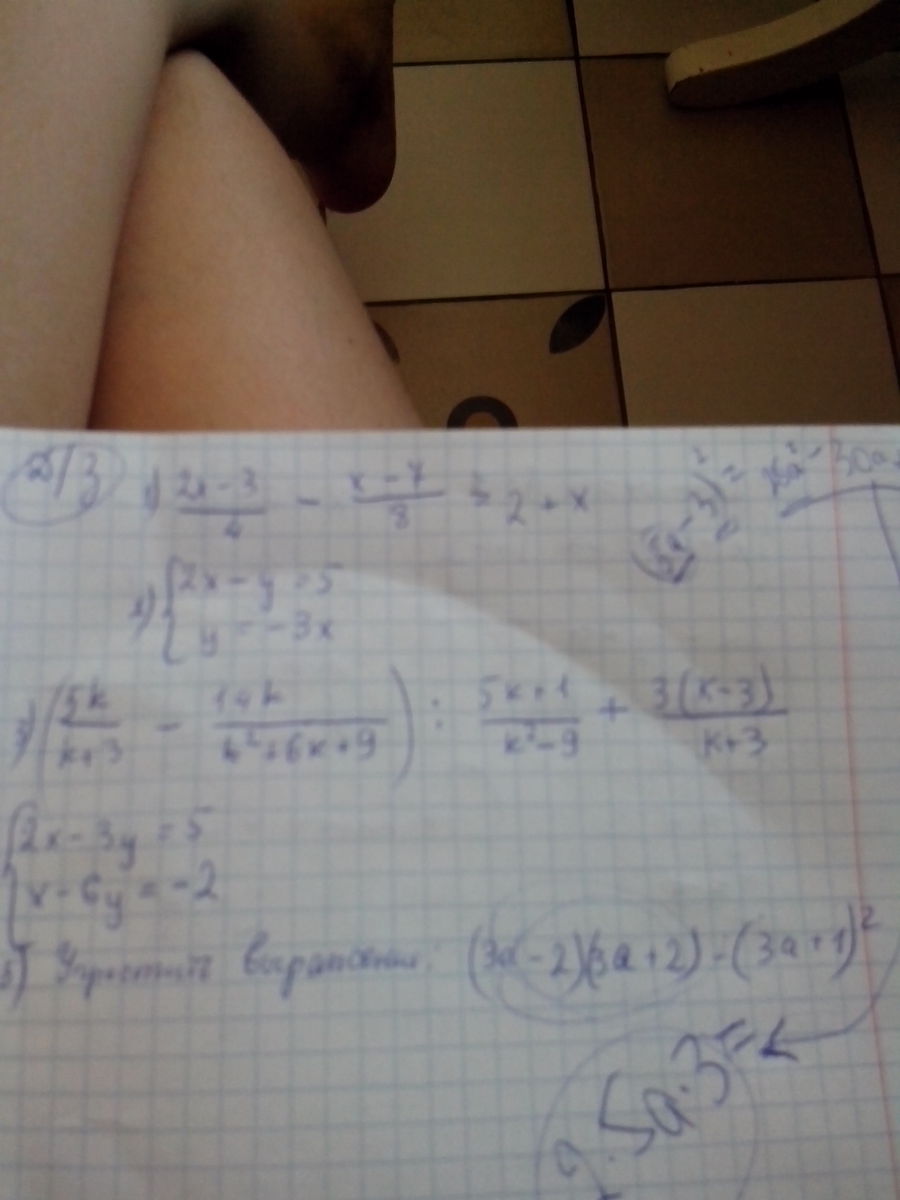 Д/З 1) (2x-3)/4 - (x-7)/8 = 2 + x
(5a-3)² = 25a² - 30a
2) { 2x - y = 5
y = -3x
3) (5k/(k+3) - 14k/(k²+6k+9)) : (5k+1)/(k²-9) + 3(k-3)/(k+3)
{ 2x - 3y = 5
x - 6y = -2
5) Упростить выражение: (3a-2)(3a+2) - (3a+1)²
2·5a·3 =